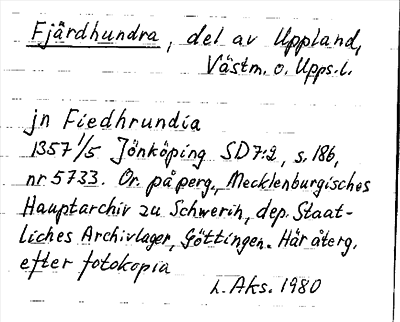 Fjärdhundra, del av Uppland,
Västm. o. Upps. l.
jn Fiedhrundia
1357 1/5 Jönköping SD7:2, s. 186,
nr 5733. Or. på perg., Mecklenburgisches
Hauptarchiv zu Schwerin, dep. Staat-
liches Archivlager, Göttingen. Här återg.
efter fotokopia
L. Aks. 1980